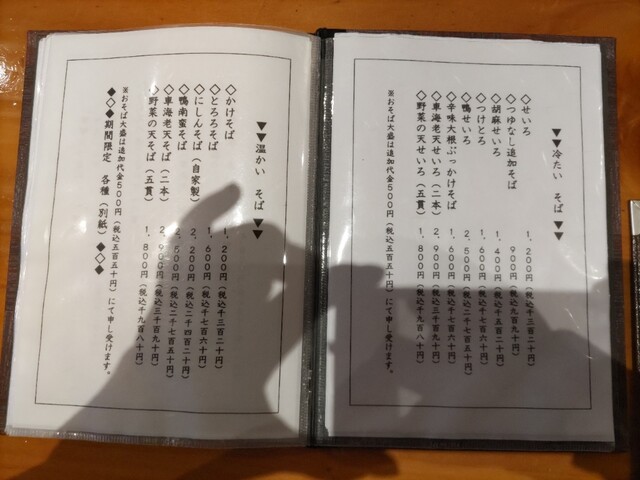 ▼▼冷たい そば▼▼
◇せいろ 1,200円(税込千三百二十円)
◇つゆなし追加そば 900円(税込九百九十円)
◇胡麻せいろ 1,400円(税込千五百四十円)
◇つけとろ 1,600円(税込千七百六十円)
◇鴨せいろ 2,500円(税込二千七百五十円)
◇辛味大根ぶっかけそば 1,600円(税込千七百六十円)
◇車海老天せいろ(二本) 2,900円(税込三千百九十円)
◇野菜の天せいろ(五貫) 1,800円(税込千九百八十円)
※おそば大盛は追加代金500円(税込五百五十円)にて申し受けます。
▼▼温かい そば▼▼
◇かけそば 1,200円(税込千三百二十円)
◇とろろそば 1,600円(税込千七百六十円)
◇にしんそば(自家製) 2,200円(税込二千四百二十円)
◇鴨南蛮そば 2,500円(税込二千七百五十円)
◇車海老天そば(二本) 2,900円(税込三千百九十円)
◇野菜の天そば(五貫) 1,800円(税込千九百八十円)
※おそば大盛は追加代金500円(税込五百五十円)にて申し受けます。
◆◇◆期間限定 各種(別紙)◆◇◆